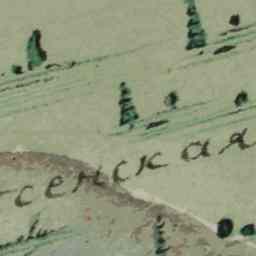 сенская